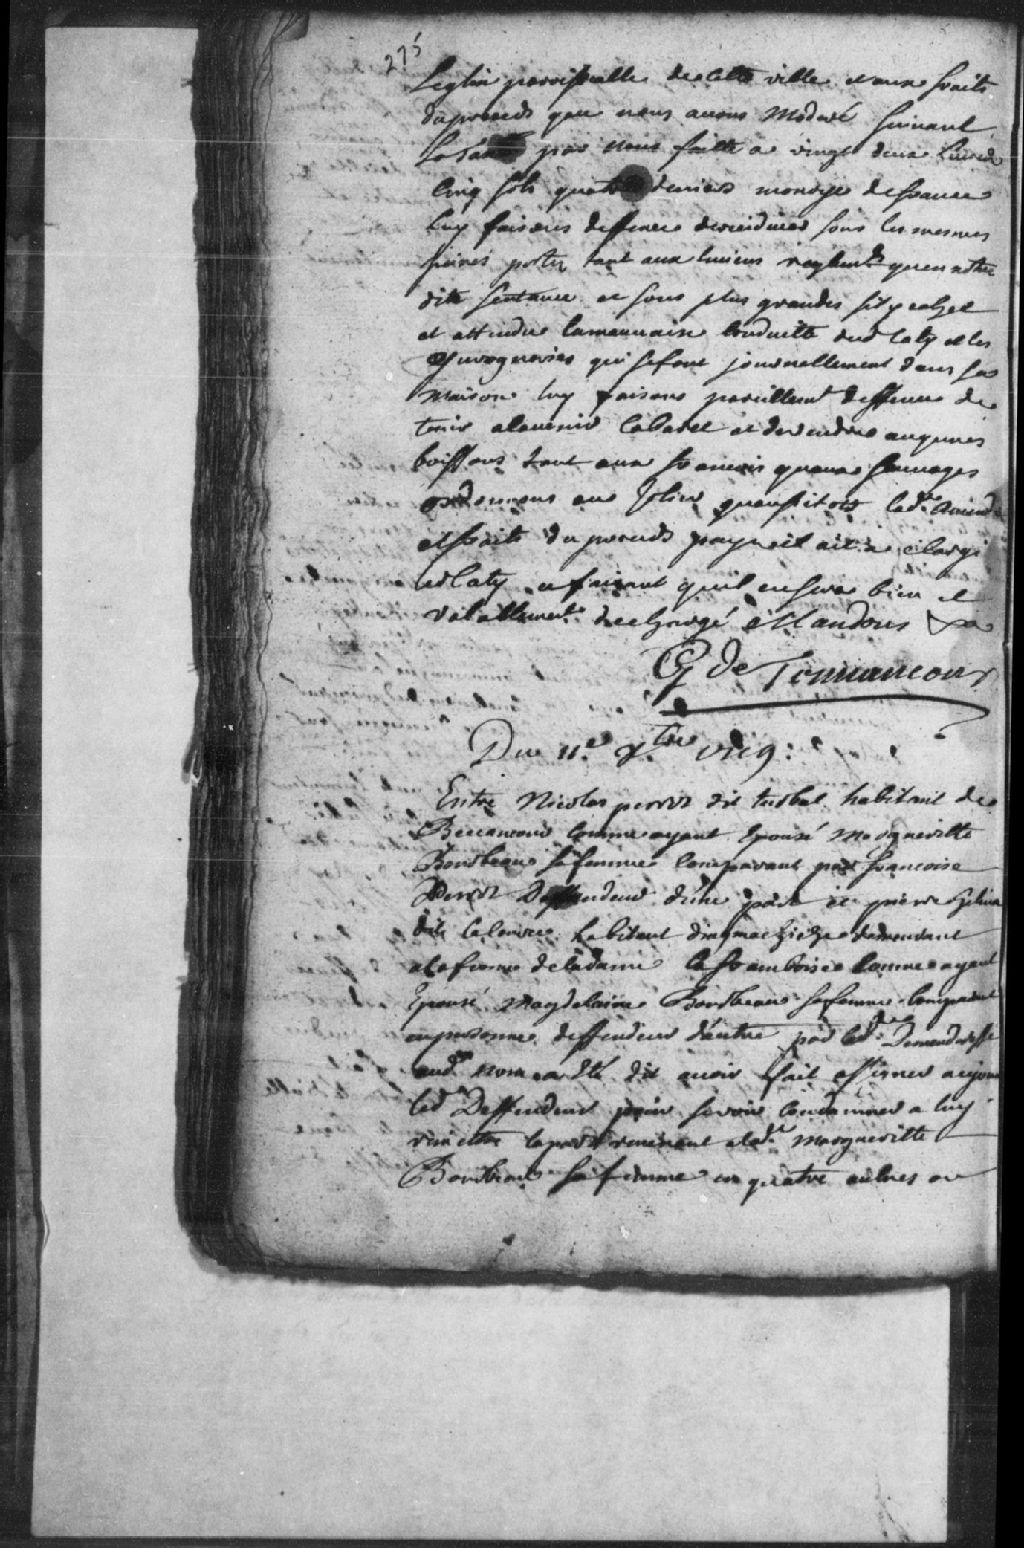 275
Leglise parroissialle de cette ville et aux fraits
du proceds que nous avons Moderé suivant
La taxe par nous faitte a vingt deux Livres
Cinq sols quatre deniers monoye de france
luy faisons deffence de recidiver sous les mesmes
peines portez tant aux susdits reglemts quen notre
dite sentance et sous plus grandes sil y echet
et attendue la mauvaise conduitte dud Caty et les
yvrogneries qui se font journellement dans sa
maison luy faisons pareillemt deffence de
tenir alavenir Cabaret et de vendre aucunes
boissons tant aux francois quaux sauvages
ordonnons au Jolier quaussitost lade amende
et fraits du proceds payé il ait a elargir
led Caty ce faisant quil en sera bien et
valablement dechargé Mandons &a
G de Tonnancour
Du 11e xbre 1719:
Entre Nicolas perrot dit turbal habitant de
Beccancour comme ayant Epousé Margueritte
Bourbeau sa femme Comparant par francoise
Perrot Deffendeur d'une part et pierre
dit habitant demeurant
a la de la dame la framboise comme ayant
Epousé Magdelaine Bourbeau sa femme Comparant
en personne deffendeur dautre part led. Demandeur
aud. nom a Eté dit avoir fait assigner
led Deffendeur pour se voir Condamner a luy
remettre la part revenant a lade Margueritte
Bourbeau sa femme en quatre aulnes